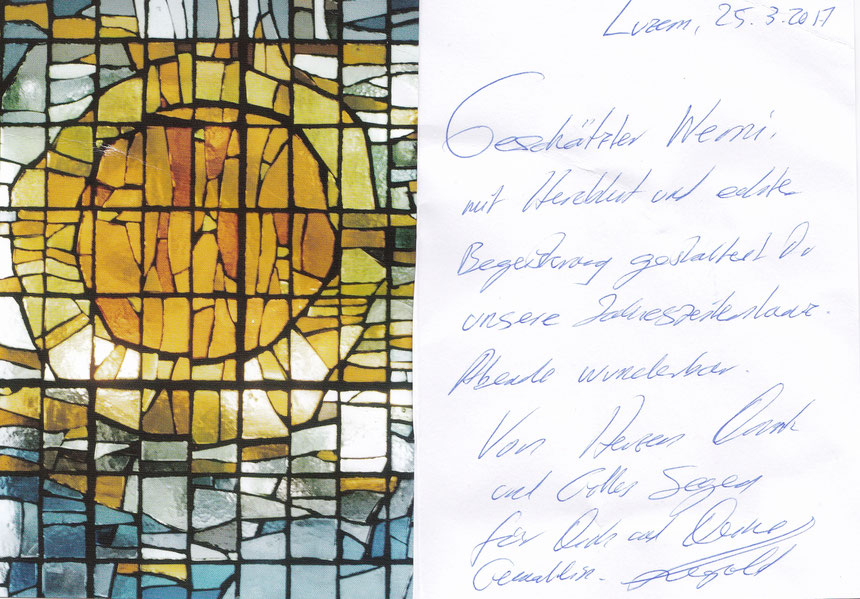 Luzern, 25.3.2017
Geschätzter Werni,
mit Herzblut und echter
Begeisterung gestaltest Du
unsere Jahreszeitentanz-
Abende wunderbar.
Von Herzen Dank
und Gottes Segen
für Dich und Deine
Gemahlin.